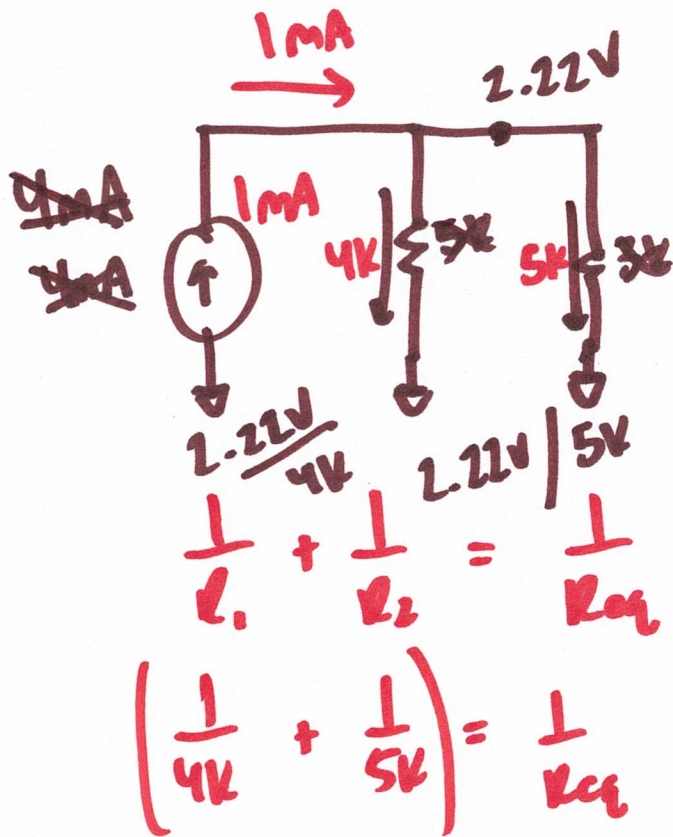 1mA
2.22V
4mA
1mA
4mA
4K 5K
5K 3K
2.22V/4K 2.22V/5K
1/R₁ + 1/R₂ = 1/Req
(1/4K + 1/5K) = 1/Req